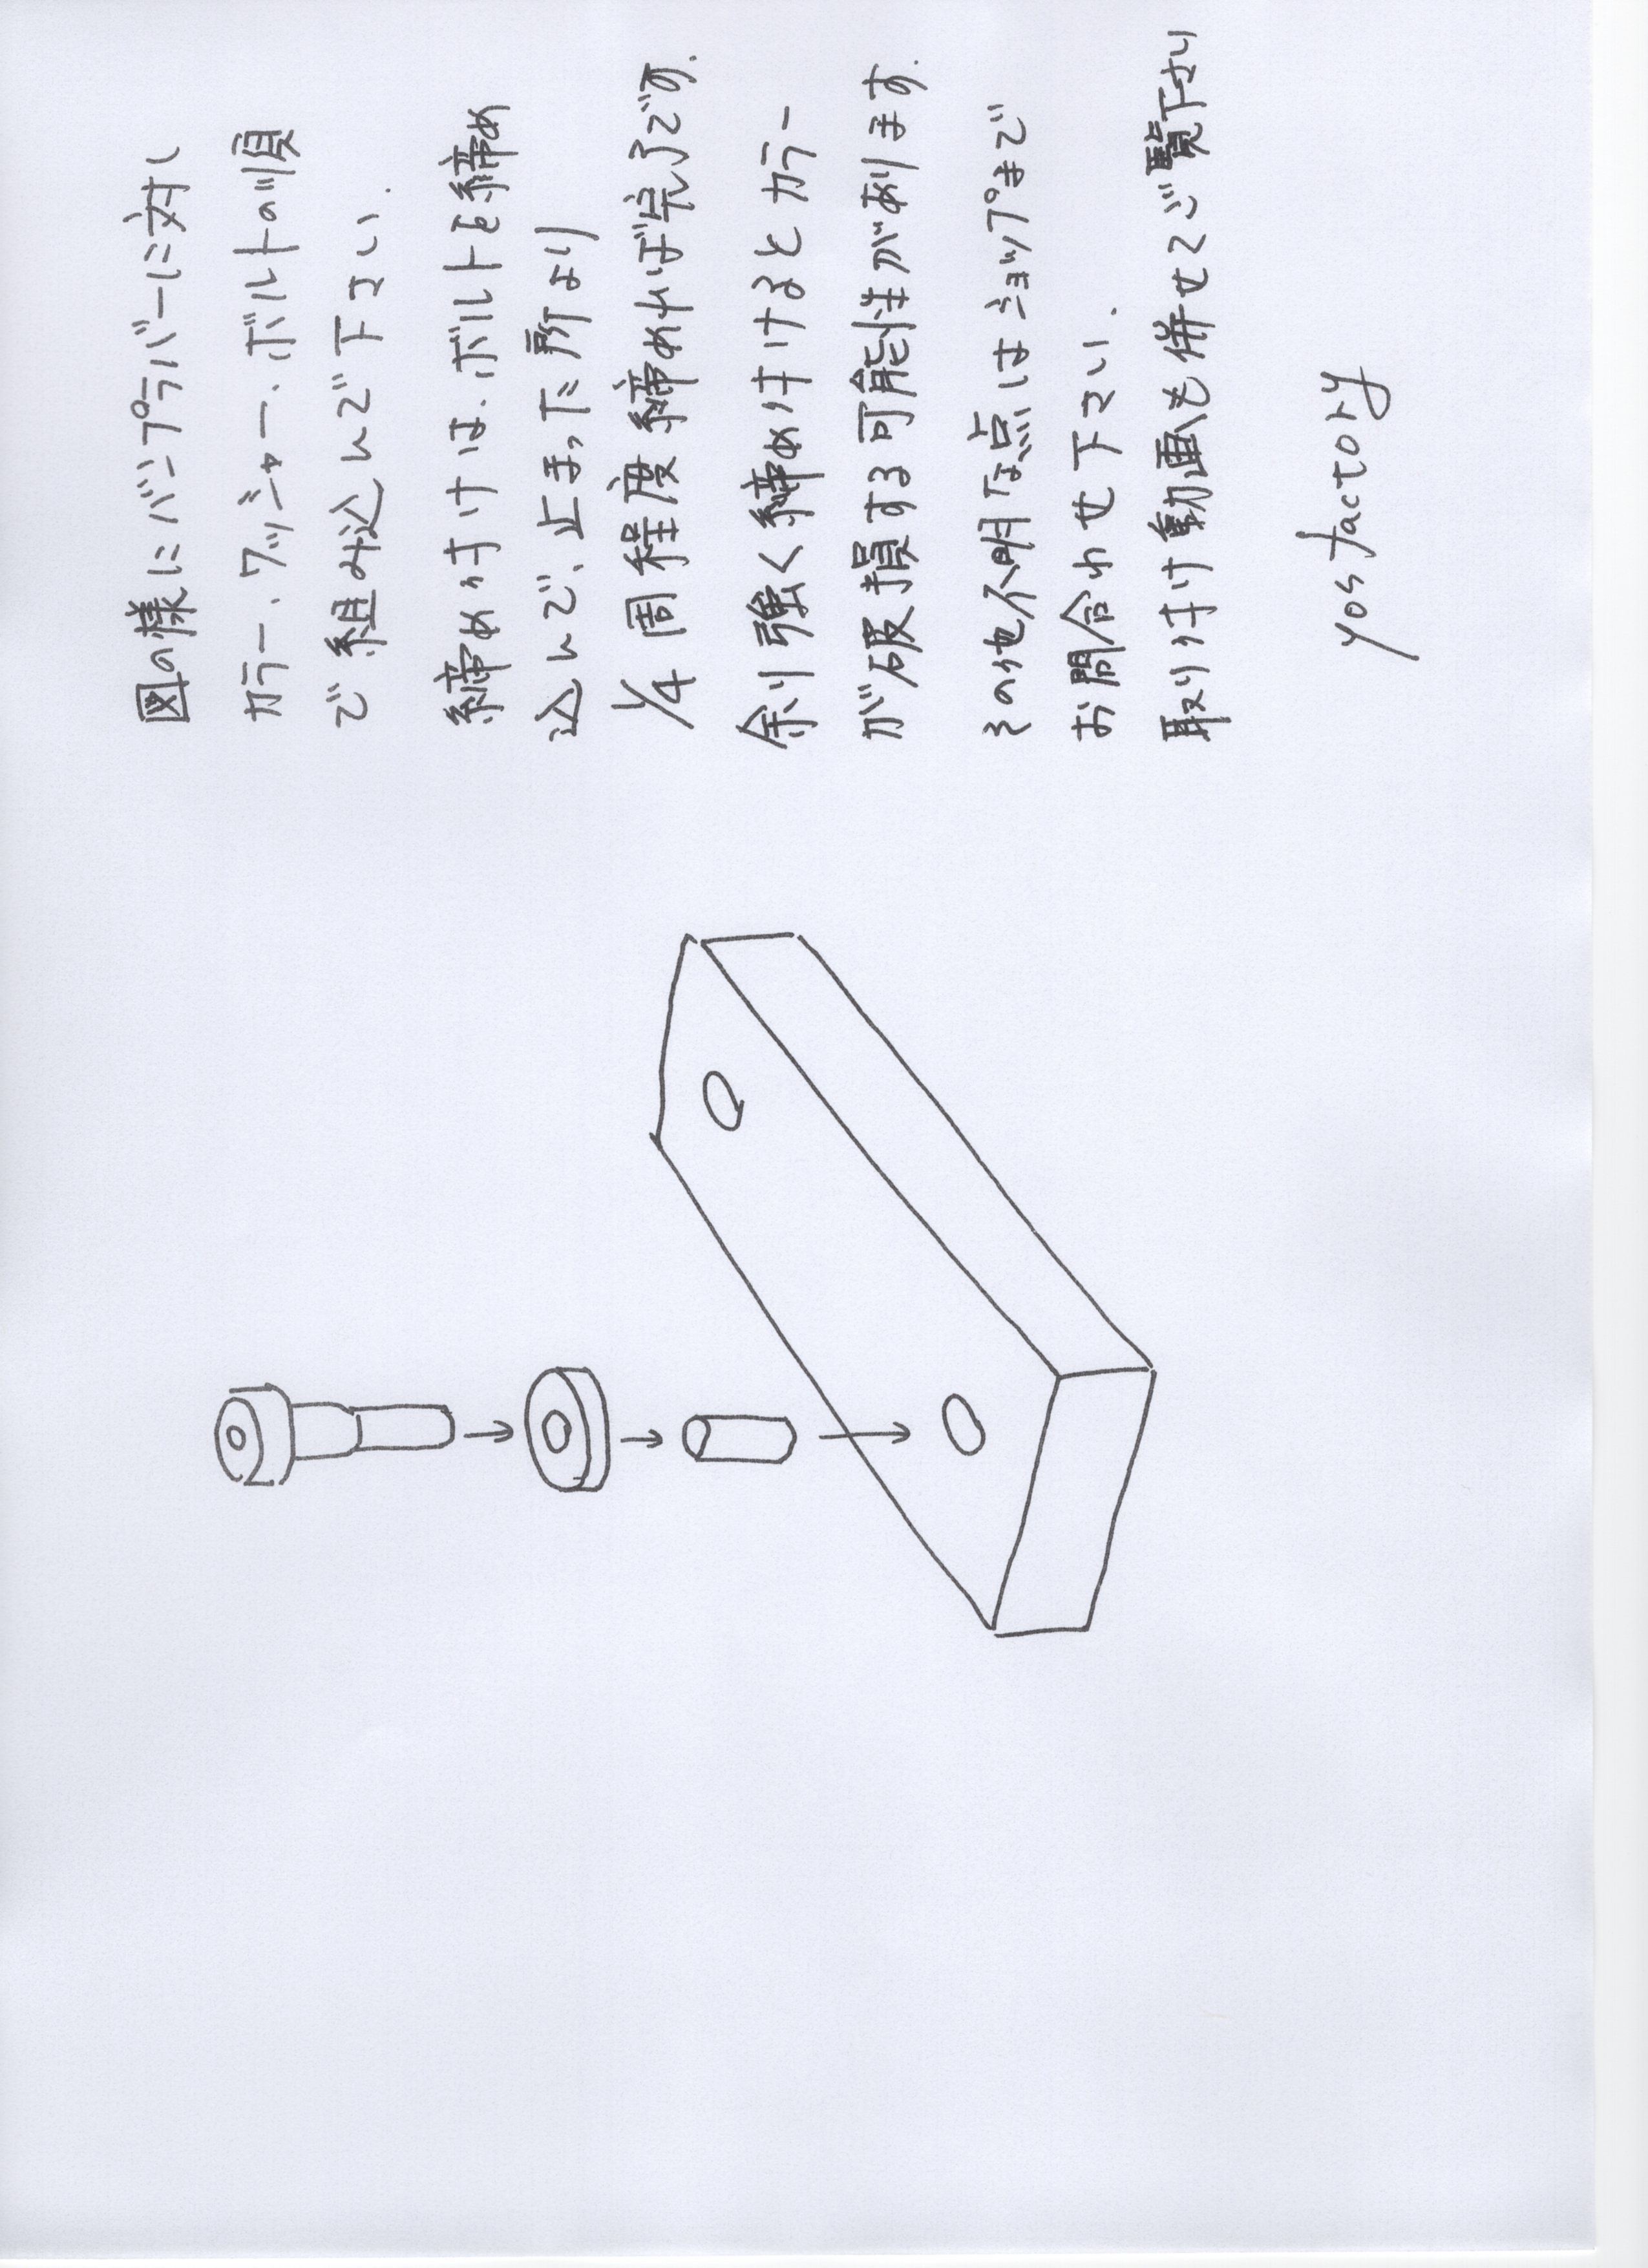 図の様にバンプラバーに対し
カラー、ワッシャー、ボルトの順
で組み込んで下さい.
締め付けは、ボルトを締め
込んで、止まった所より
1/4周程度締めれば完了です.
余り強く締め付けるとカラー
が破損する可能性があります.
その他不明な点はショップまで
お問合わせ下さい.
取り付け動画も併せてご覧下さい
yos factory